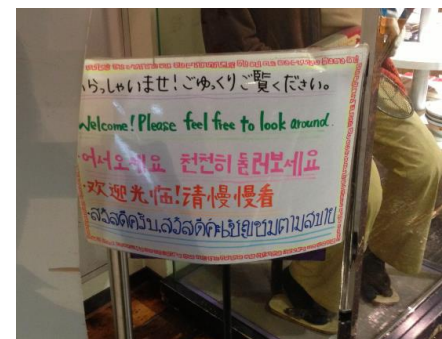 いらっしゃいませ!ごゆっくりご覧ください。
Welcome! Please feel free to look around.
어서오세요 천천히 둘러보세요
·欢迎光临!请慢慢看
·สวัสดีครับ,สวัสดีค่ะเชิญชมตามสบาย